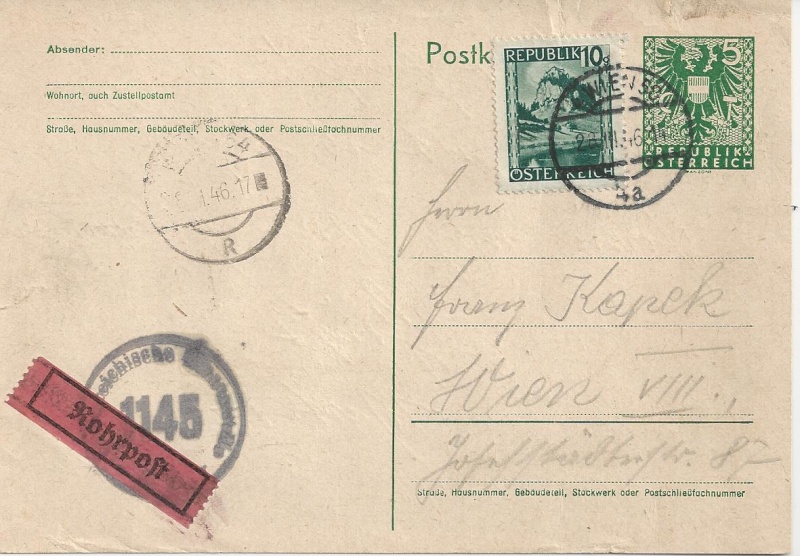 Absender:
Wohnort, auch Zustellpostamt
Straße, Hausnummer, Gebäudeteil, Stockwerk oder Postschließfachnummer
46.17
R
1145
Rohrpost
REPUBLIK 10g
ÖSTERREICH
5
REPUBLIK
ÖSTERREICH
46
4a
Herrn
Franz Kapek
Wien VIII.,
Josefstädterstr. 87
Straße, Hausnummer, Gebäudeteil, Stockwerk oder Postschließfachnummer